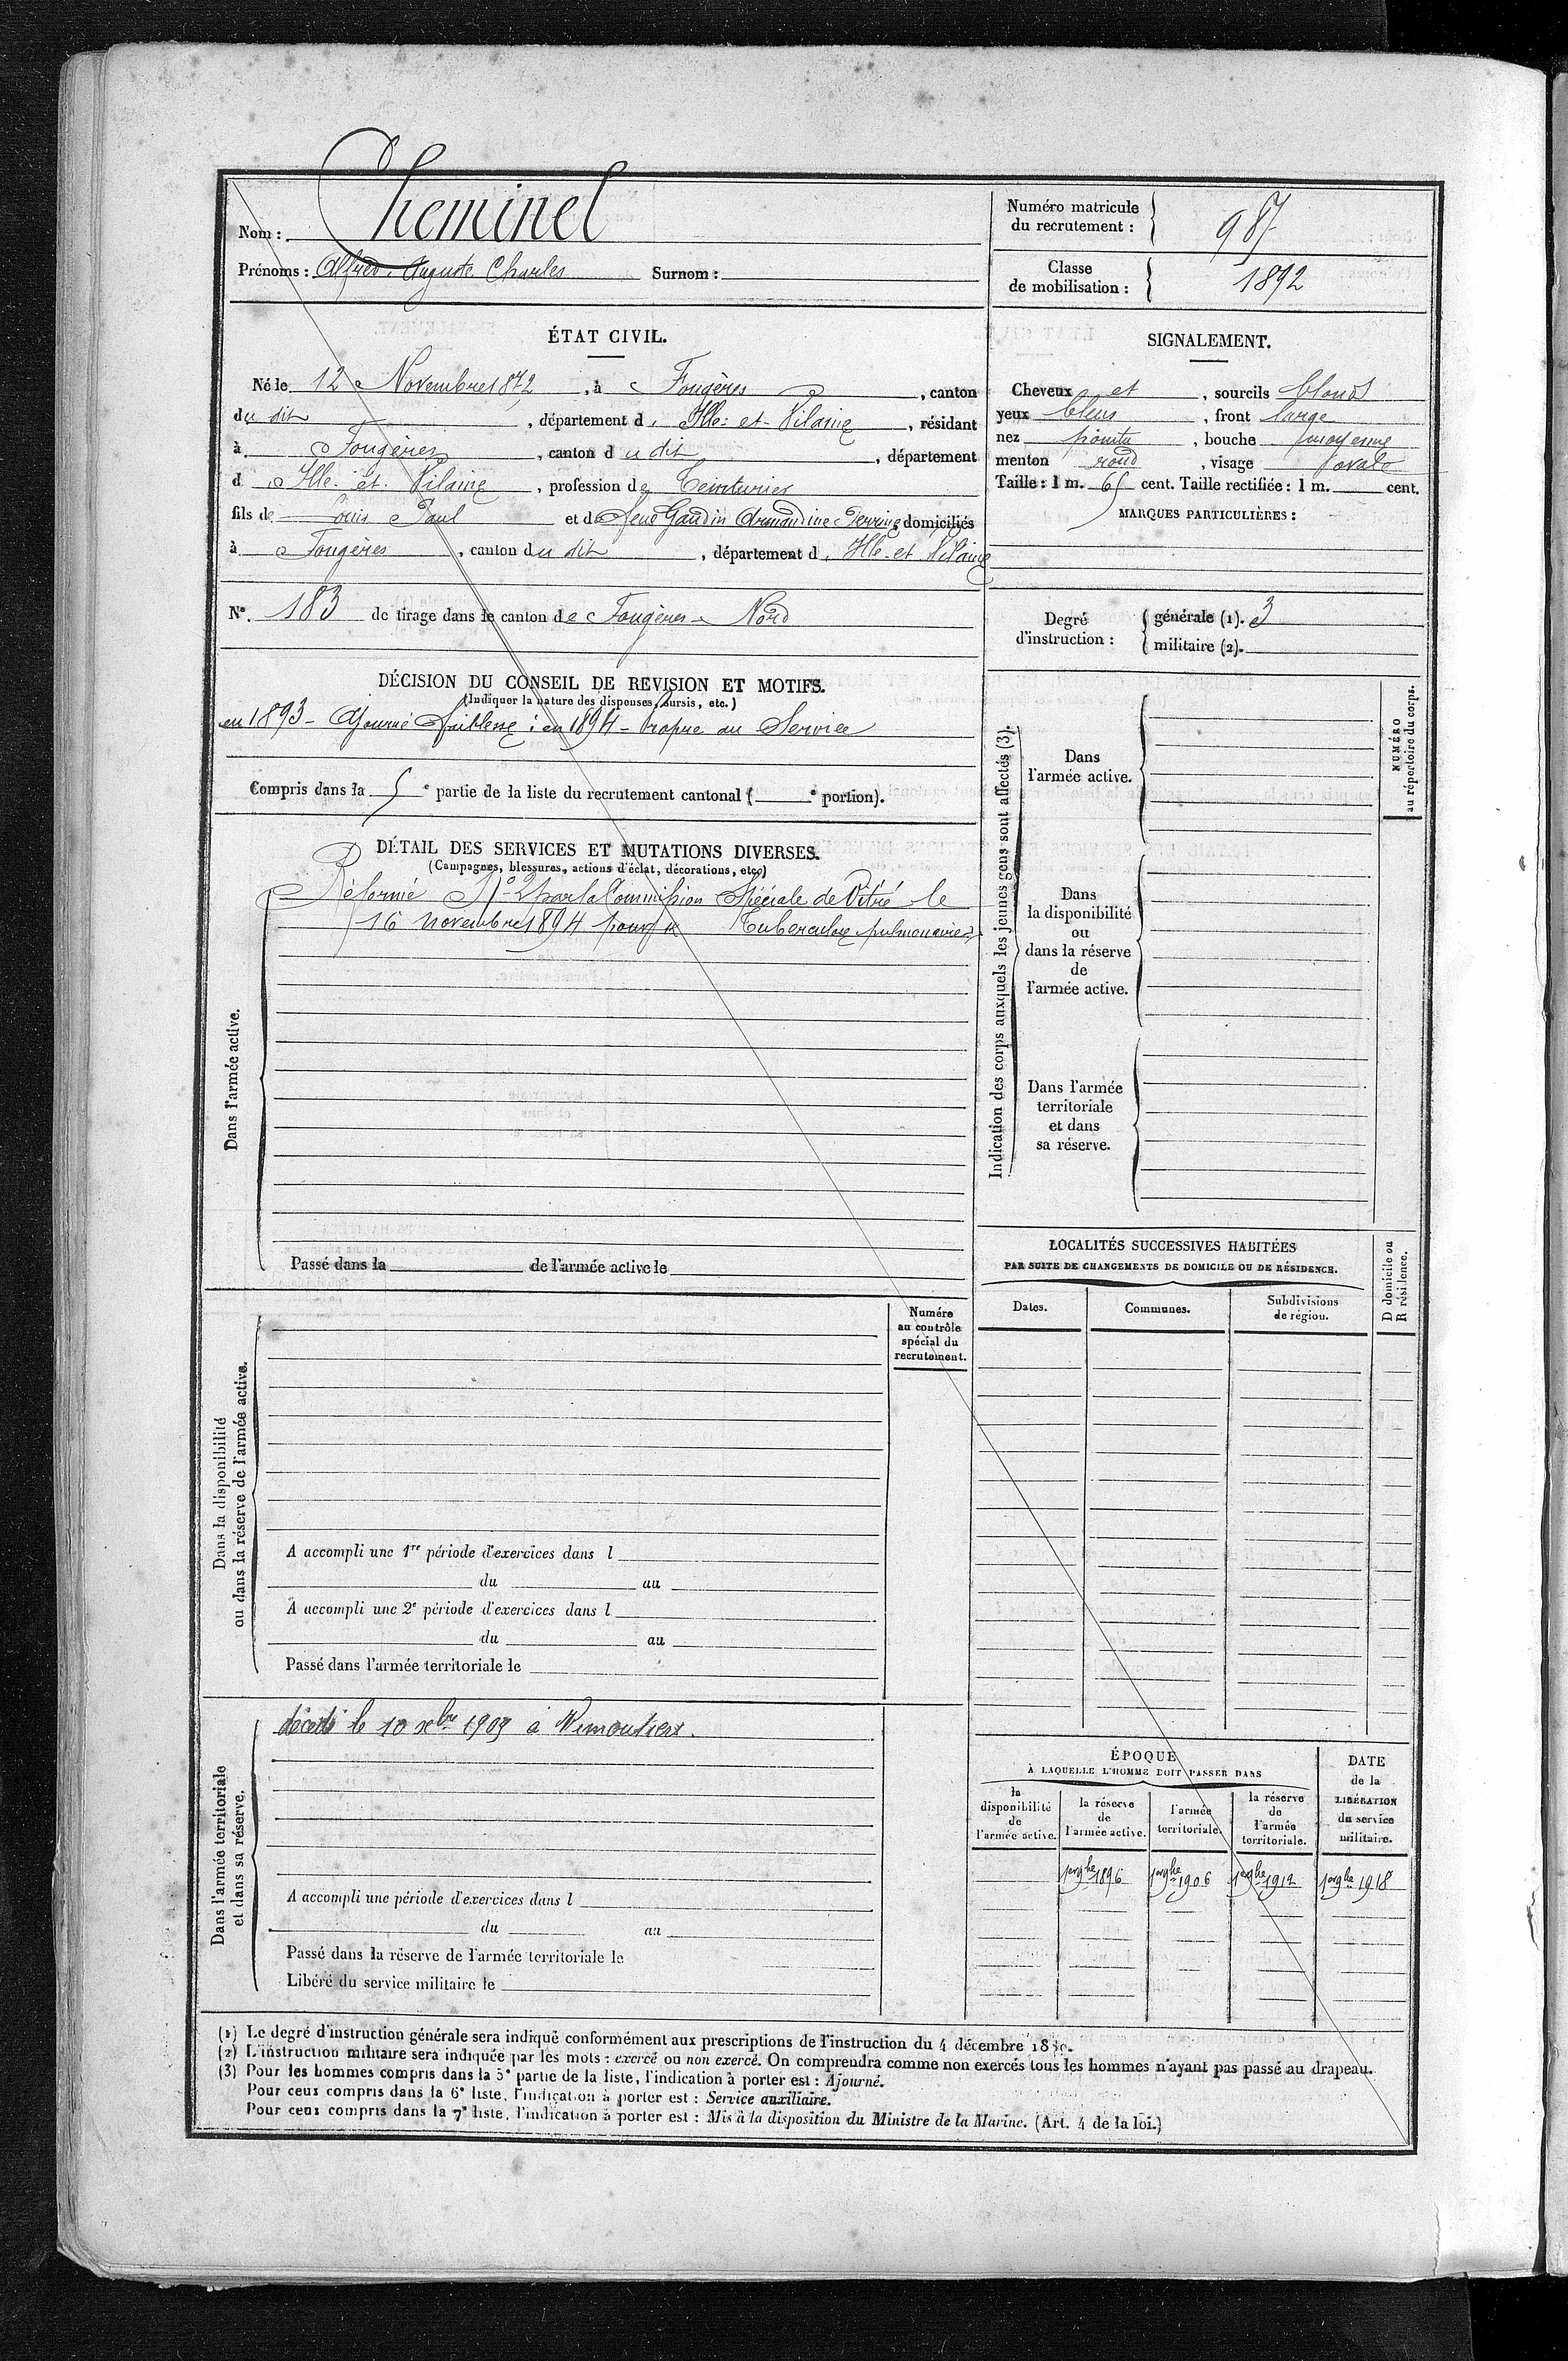 Nom : Cheminel
Prénoms : Alfred Auguste Charles Surnom :
Numéro matricule du recrutement : 987
Classe de mobilisation : 1892
ÉTAT CIVIL.
Né le 12 Novembre 1872, à Fougères, canton
du dit, département d Ille-et-Vilaine, résidant
à Fougères, canton du dit, département
d Ille-et-Vilaine, profession de Teinturier
fils de Louis Paul et de feue Gaudin Armandine Perrine, domiciliés
à Fougères, canton du dit, département d Ille-et-Vilaine
N° 183 de tirage dans le canton de Fougères-Nord
SIGNALEMENT.
Cheveux et, sourcils blonds
yeux bleus, front large
nez pointu, bouche moyenne
menton rond, visage ovale
Taille : 1 m. 65 cent. Taille rectifiée : 1 m. cent.
MARQUES PARTICULIÈRES :
Degré d'instruction :
générale (1). 3
militaire (2).
DÉCISION DU CONSEIL DE REVISION ET MOTIFS.
(Indiquer la nature des dispenses, sursis, etc.)
en 1893 - Ajourné faiblesse ; en 1894 - Propre au Service
Compris dans la 5e partie de la liste du recrutement cantonal ( e portion).
DÉTAIL DES SERVICES ET MUTATIONS DIVERSES.
(Campagnes, blessures, actions d'éclat, décorations, etc.)
Dans l'armée active.
Réformé N° 2 par la Commission Spéciale de Vitré le
16 novembre 1894 pour Tuberculose pulmonaire
Passé dans la de l'armée active le
Indication des corps auxquels les jeunes gens sont affectés (3).
NUMÉRO
au répertoire du corps.
Dans
l'armée active.
Dans
la disponibilité
ou
dans la réserve
de
l'armée active.
Dans l'armée
territoriale
et dans
sa réserve.
LOCALITÉS SUCCESSIVES HABITÉES
PAR SUITE DE CHANGEMENTS DE DOMICILE OU DE RÉSIDENCE.
Dates.
Communes.
Subdivisions
de région.
D domicile ou
R résidence.
Dans la disponibilité
ou dans la réserve de l'armée active.
Numéro
au contrôle
spécial du
recrutement.
A accompli une 1re période d'exercices dans l
du au
A accompli une 2e période d'exercices dans l
du au
Passé dans l'armée territoriale le
Dans l'armée territoriale
et dans sa réserve.
décédé le 10 xbre 1909 à
A accompli une période d'exercices dans l
du au
Passé dans la réserve de l'armée territoriale le
Libéré du service militaire le
ÉPOQUE
À LAQUELLE L'HOMME DOIT PASSER DANS
la
disponibilité
de
l'armée active.
la réserve
de
l'armée active.
l'armée
territoriale.
la réserve
de
l'armée
territoriale.
DATE
de la
LIBÉRATION
du service
militaire.
1er 9bre 1896 1er 9bre 1906 1er 9bre 1912 1er 9bre 1918
(1) Le degré d'instruction générale sera indiqué conformément aux prescriptions de l'instruction du 4 décembre
(2) L'instruction militaire sera indiquée par les mots : exercé ou non exercé. On comprendra comme non exercés tous les hommes n'ayant pas passé au drapeau.
(3) Pour les hommes compris dans la 5e partie de la liste, l'indication à porter est : Ajourné.
Pour ceux compris dans la 6e liste, l'indication à porter est : Service auxiliaire.
Pour ceux compris dans la 7e liste, l'indication à porter est : Mis à la disposition du Ministre de la Marine. (Art. 4 de la loi.)